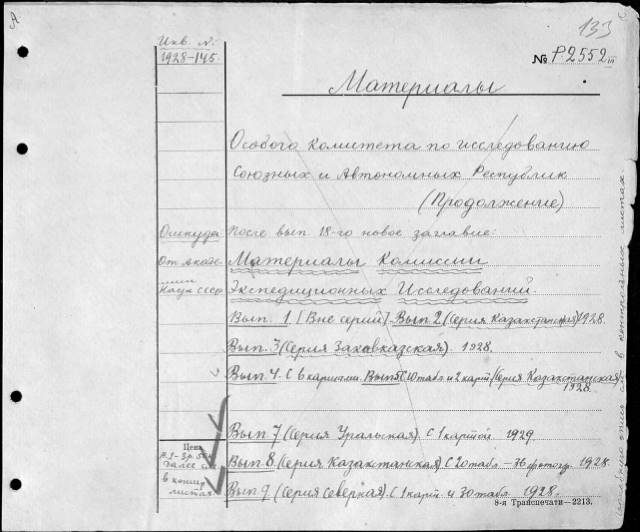 133
А
Инв. №
1928-145
№ Р2552 III
Материалы
Особого Комитета по исследованию
Союзных и Автономных Республик
(Продолжение)
Откуда
После вып. 18-го новое заглавие:
От Академии
Наук СССР
Материалы Комиссии
Экспедиционных Исследований.
Вып. 1 [Вне серий]. Вып. 2 (Серия Казакстанская) 1928.
Вып. 3 (Серия Закавказская). 1928.
Вып. 4. С 6 картами. Вып. 5 С 10 табл. и 2 карт. (Серия Казакстанская)
1928.
Вып. 7 (Серия Уральская). С 1 картой. 1929.
Цена
Вып. 8. (Серия Казакстанская). С 20 табл. – 76 фотогр. 1928.
далее
в контр
листах
Вып. 9 (Серия Северная). С 1 карт. и 30 табл. 1928.
8-я Транспечати—2213.
в контрольных листах.